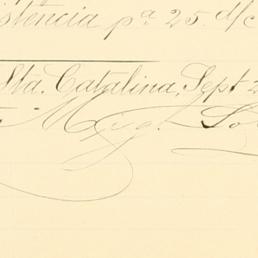 istencia pª 25. d/c
Sta. Catalina, Sept 2
Mig. Lo